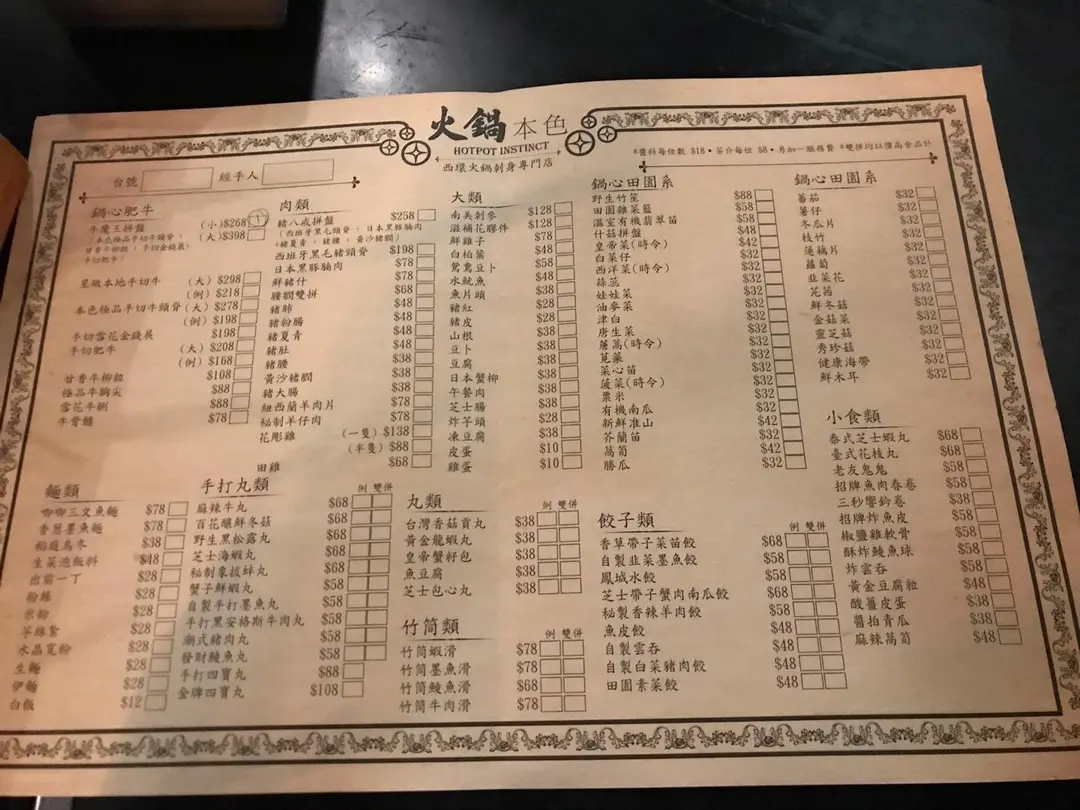 火鍋本色
HOTPOT INSTINCT
西環火鍋刺身專門店
台號 經手人
*醬料每位數 $18 • 茶介每位 $8 • 另加一服務費 *雙拼均以價高食品計
鍋心肥牛
牛魔王拼盤 (小)$268
(大)$398
星級本地手切牛 (大) $298
(例) $218
本色極品手切牛頸脊 (大) $278
(例) $198
手切雪花金錢展 $198
手切肥牛 (大) $208
(例) $168
甘香牛柳粒 $108
極品牛胸尖 $88
雪花牛脷 $88
牛骨髓 $78
肉類
豬八戒拼盤 $258
(西班牙黑毛豬頸脊,日本黑豚腩肉
,豬夏青,豬腰,黃沙豬膶)
西班牙黑毛豬頸脊 $198
日本黑豚腩肉 $78
鮮豬什 $78
腰膶雙拼 $68
豬肺 $48
豬粉腸 $48
豬夏青 $48
豬肚 $48
豬腰 $38
黃沙豬膶 $38
豬大腸 $38
紐西蘭羊肉片 $78
秘制羊仔肉 $78
花彫雞 (一隻) $138
(半隻) $88
田雞 $68
大類
南美刺參 $128
滋補花膠件 $128
鮮雞子 $78
白柏葉 $68
鴛鴦豆卜 $58
水魷魚 $48
魚片頭 $38
豬紅 $28
豬皮 $28
山根 $38
豆卜 $38
豆腐 $38
日本蟹柳 $38
午餐肉 $38
芝士腸 $38
炸芋頭 $28
凍豆腐 $38
皮蛋 $10
雞蛋 $10
鍋心田園系
野生竹笙 $88
田園雜菜籃 $58
溫室有機翡翠苗 $48
什菇拼盤 $48
皇帝菜(時令) $42
白菜仔 $32
西洋菜(時令) $32
蒜蕊 $32
娃娃菜 $32
油麥菜 $32
津白 $32
唐生菜 $32
茼蒿(時令) $32
莧菜 $32
菜心苗 $32
菠菜(時令) $32
粟米 $32
有機南瓜 $32
新鮮准山 $42
芥蘭苗 $32
萵筍 $42
勝瓜 $32
鍋心田園系
蕃茄 $32
薯仔 $32
冬瓜片 $32
枝竹 $32
蓮藕片 $32
蘿蔔 $32
韭菜花 $32
芫茜 $32
鮮冬菇 $32
金菇菜 $32
靈芝菇 $32
秀珍菇 $32
健康海帶 $32
鮮木耳 $32
小食類
泰式芝士蝦丸 $68
臺式花枝丸 $68
老友鬼鬼 $58
招牌魚肉春卷 $58
三秒響鈴卷 $38
招牌炸魚皮 $58
椒鹽雞軟骨 $58
酥炸鯪魚球 $58
炸雲吞 $58
黃金豆腐粒 $48
酸薑皮蛋 $38
醬拍青瓜 $38
麻辣萵筍 $48
麵類
唧唧三文魚麵 $78
香蔥墨魚麵 $78
稻庭烏冬 $38
生菜泡飯料 $48
出前一丁 $28
粉絲 $28
米粉 $28
芋絲紮 $28
水晶寬粉 $28
生麵 $28
伊麵 $28
白飯 $12
手打丸類 例 雙併
麻辣牛丸 $68
百花釀鮮冬菇 $68
野生黑松露丸 $68
芝士海蝦丸 $68
秘制象拔蚌丸 $68
蟹子鮮蝦丸 $68
自製手打墨魚丸 $58
手打黑安格斯牛肉丸 $58
潮式豬肉丸 $58
發財鯪魚丸 $58
手打四寶丸 $88
金牌四寶丸 $108
丸類 例 雙併
台灣香菇貢丸 $38
黃金龍蝦丸 $38
皇帝蟹籽包 $38
魚豆腐 $38
芝士包心丸 $38
竹筒類 例 雙併
竹筒蝦滑 $78
竹筒墨魚滑 $78
竹筒鯪魚滑 $68
竹筒牛肉滑 $78
餃子類 例 雙併
香草帶子菜苗餃 $68
自製韭菜墨魚餃 $58
鳳城水餃 $58
芝士帶子蟹肉南瓜餃 $68
秘製香辣羊肉餃 $58
魚皮餃 $48
自製雲吞 $48
自製白菜豬肉餃 $48
田園素菜餃 $48